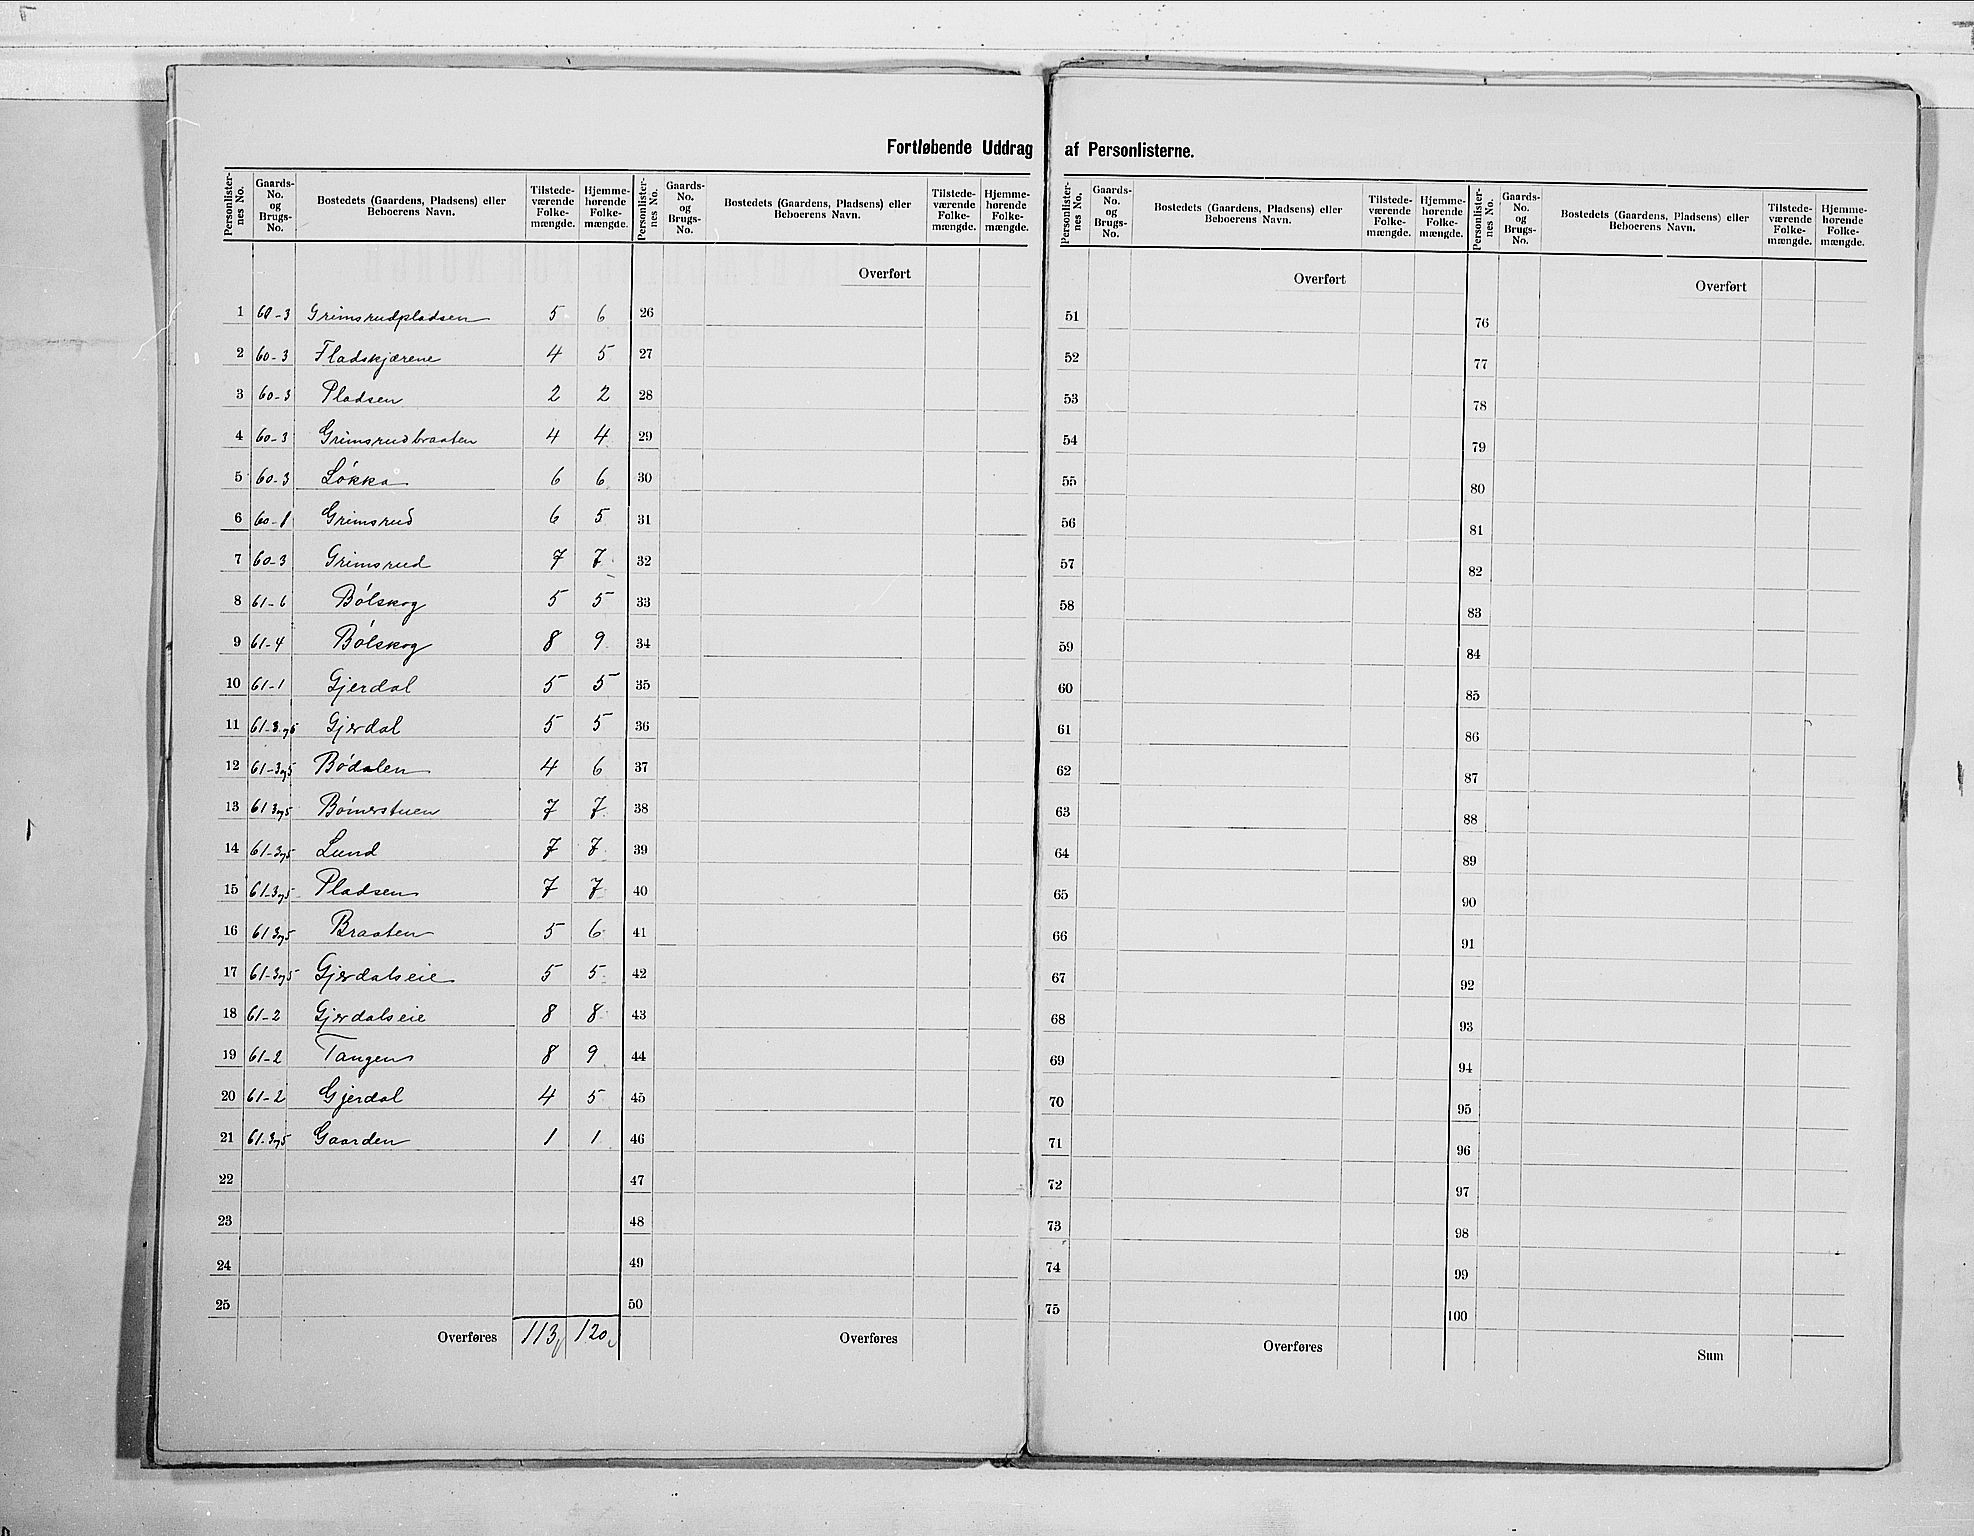 Fortløbende Uddrag af Personlisterne.
Personlister-nes No. Gaards-No. og Brugs-No. Bostedets (Gaardens, Pladsens) eller Beboerens Navn. Tilstede-værende Folke-mængde. Hjemme-hørende Folke-mængde.
1 60-3 Grimsrudpladsen 5 6
2 60-3 Fladskjærene 4 5
3 60-3 Pladsen 2 2
4 60-3 Grimsrudbraaten 4 4
5 60-3 Løkka 6 6
6 60-1 Grimsrud 6 5
7 60-3 Grimsrud 7 7
8 61-6 Bølskog 5 5
9 61-4 Bølskog 8 9
10 61-1 Gjerdal 5 5
11 61-3 Gjerdal 5 5
12 61-3og5 Bødalen 4 6
13 61 3og5 Bømerstuen 7 7
14 61-3og5 Lund 7 7
15 61-3og5 Pladsen 7 7
16 61 3og5 Braaten 5 6
17 61-3og5 Gjerdalseie 5 5
18 61-2 Gjerdalseie 8 8
19 61-2 Tangen 8 9
20 61-2 Gjerdal 4 5
21 61-3og5 Gaarden 1 1
22
23
24
25
Overføres 113 120
Personlister-nes No. Gaards-No. og Brugs-No. Bostedets (Gaardens, Pladsens) eller Beboerens Navn. Tilstede-værende Folke-mængde. Hjemme-hørende Folke-mængde.
Overført
26
27
28
29
30
31
32
33
34
35
36
37
38
39
40
41
42
43
44
45
46
47
48
49
50
Overføres
Personlister-nes No. Gaards-No. og Brugs-No. Bostedets (Gaardens, Pladsens) eller Beboerens Navn. Tilstede-værende Folke-mængde. Hjemme-hørende Folke-mængde.
Overført
51
52
53
54
55
56
57
58
59
60
61
62
63
64
65
66
67
68
69
70
71
72
73
74
75
Overføres
Personlister-nes No. Gaards-No. og Brugs-No. Bostedets (Gaardens, Pladsens) eller Beboerens Navn. Tilstede-værende Folke-mængde. Hjemme-hørende Folke-mængde.
Overført
76
77
78
79
80
81
82
83
84
85
86
87
88
89
90
91
92
93
94
95
96
97
98
99
100
Sum